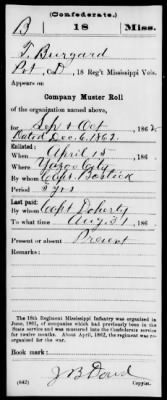 (Confederate.)
B 18 Miss.
T. Burgard
Pvt D, 18 Reg't Mississippi Vols.
Appears on
Company Muster Roll
of the organization named above,
for Sept & Oct, 1862
Dated Dec. 6, 1862
Enlisted:
When April 15, 186
Where Yazoo City
By whom Capt Bostick
Period 2 yrs
Last paid:
By whom Capt Doherty
To what time Aug 31, 186
Present or absent Present
Remarks:
The 18th Regiment Mississippi Infantry was organized in
June, 1861, of companies which had previously been in the
State service and was mustered into the Confederate service
for twelve months. About April, 1862, the regiment was re-
organized for the war.
Book mark:
J B Doud
(642) Copyist.